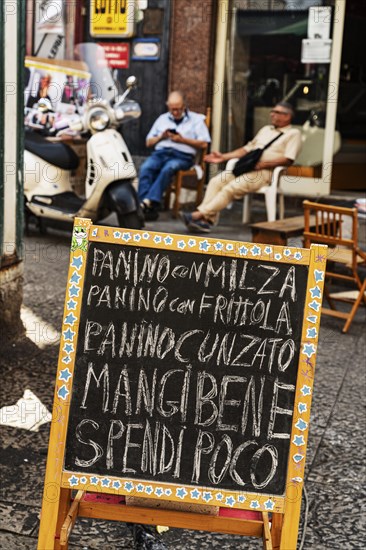 LOTTO
PANINO CON MILZA
PANINO CON FRITTOLA
PANINO CUNZATO
MANGI BENE
SPENDI POCO